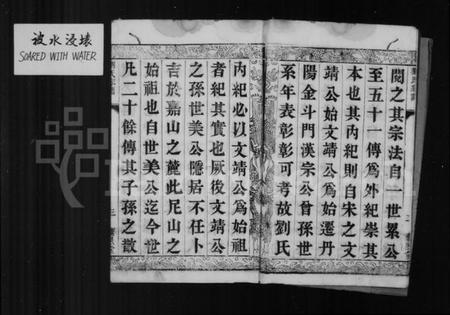 被水浸壞
SOARED WITH WATER
閱之其宗法自一世累公
至五十一傳為外紀崇其
本也其內紀則自宋之文
靖公始文靖公為始遷丹
陽金斗門漢宗公曾孫世
系年表彰彰可考故劉氏
內紀必以文靖公為始祖
者紀其實也厥後文靖公
之孫世美公隱居不仕卜
吉於嘉山之麓此尼山之
始祖也自世美公迄今世
凡二十餘傳其子孫之散